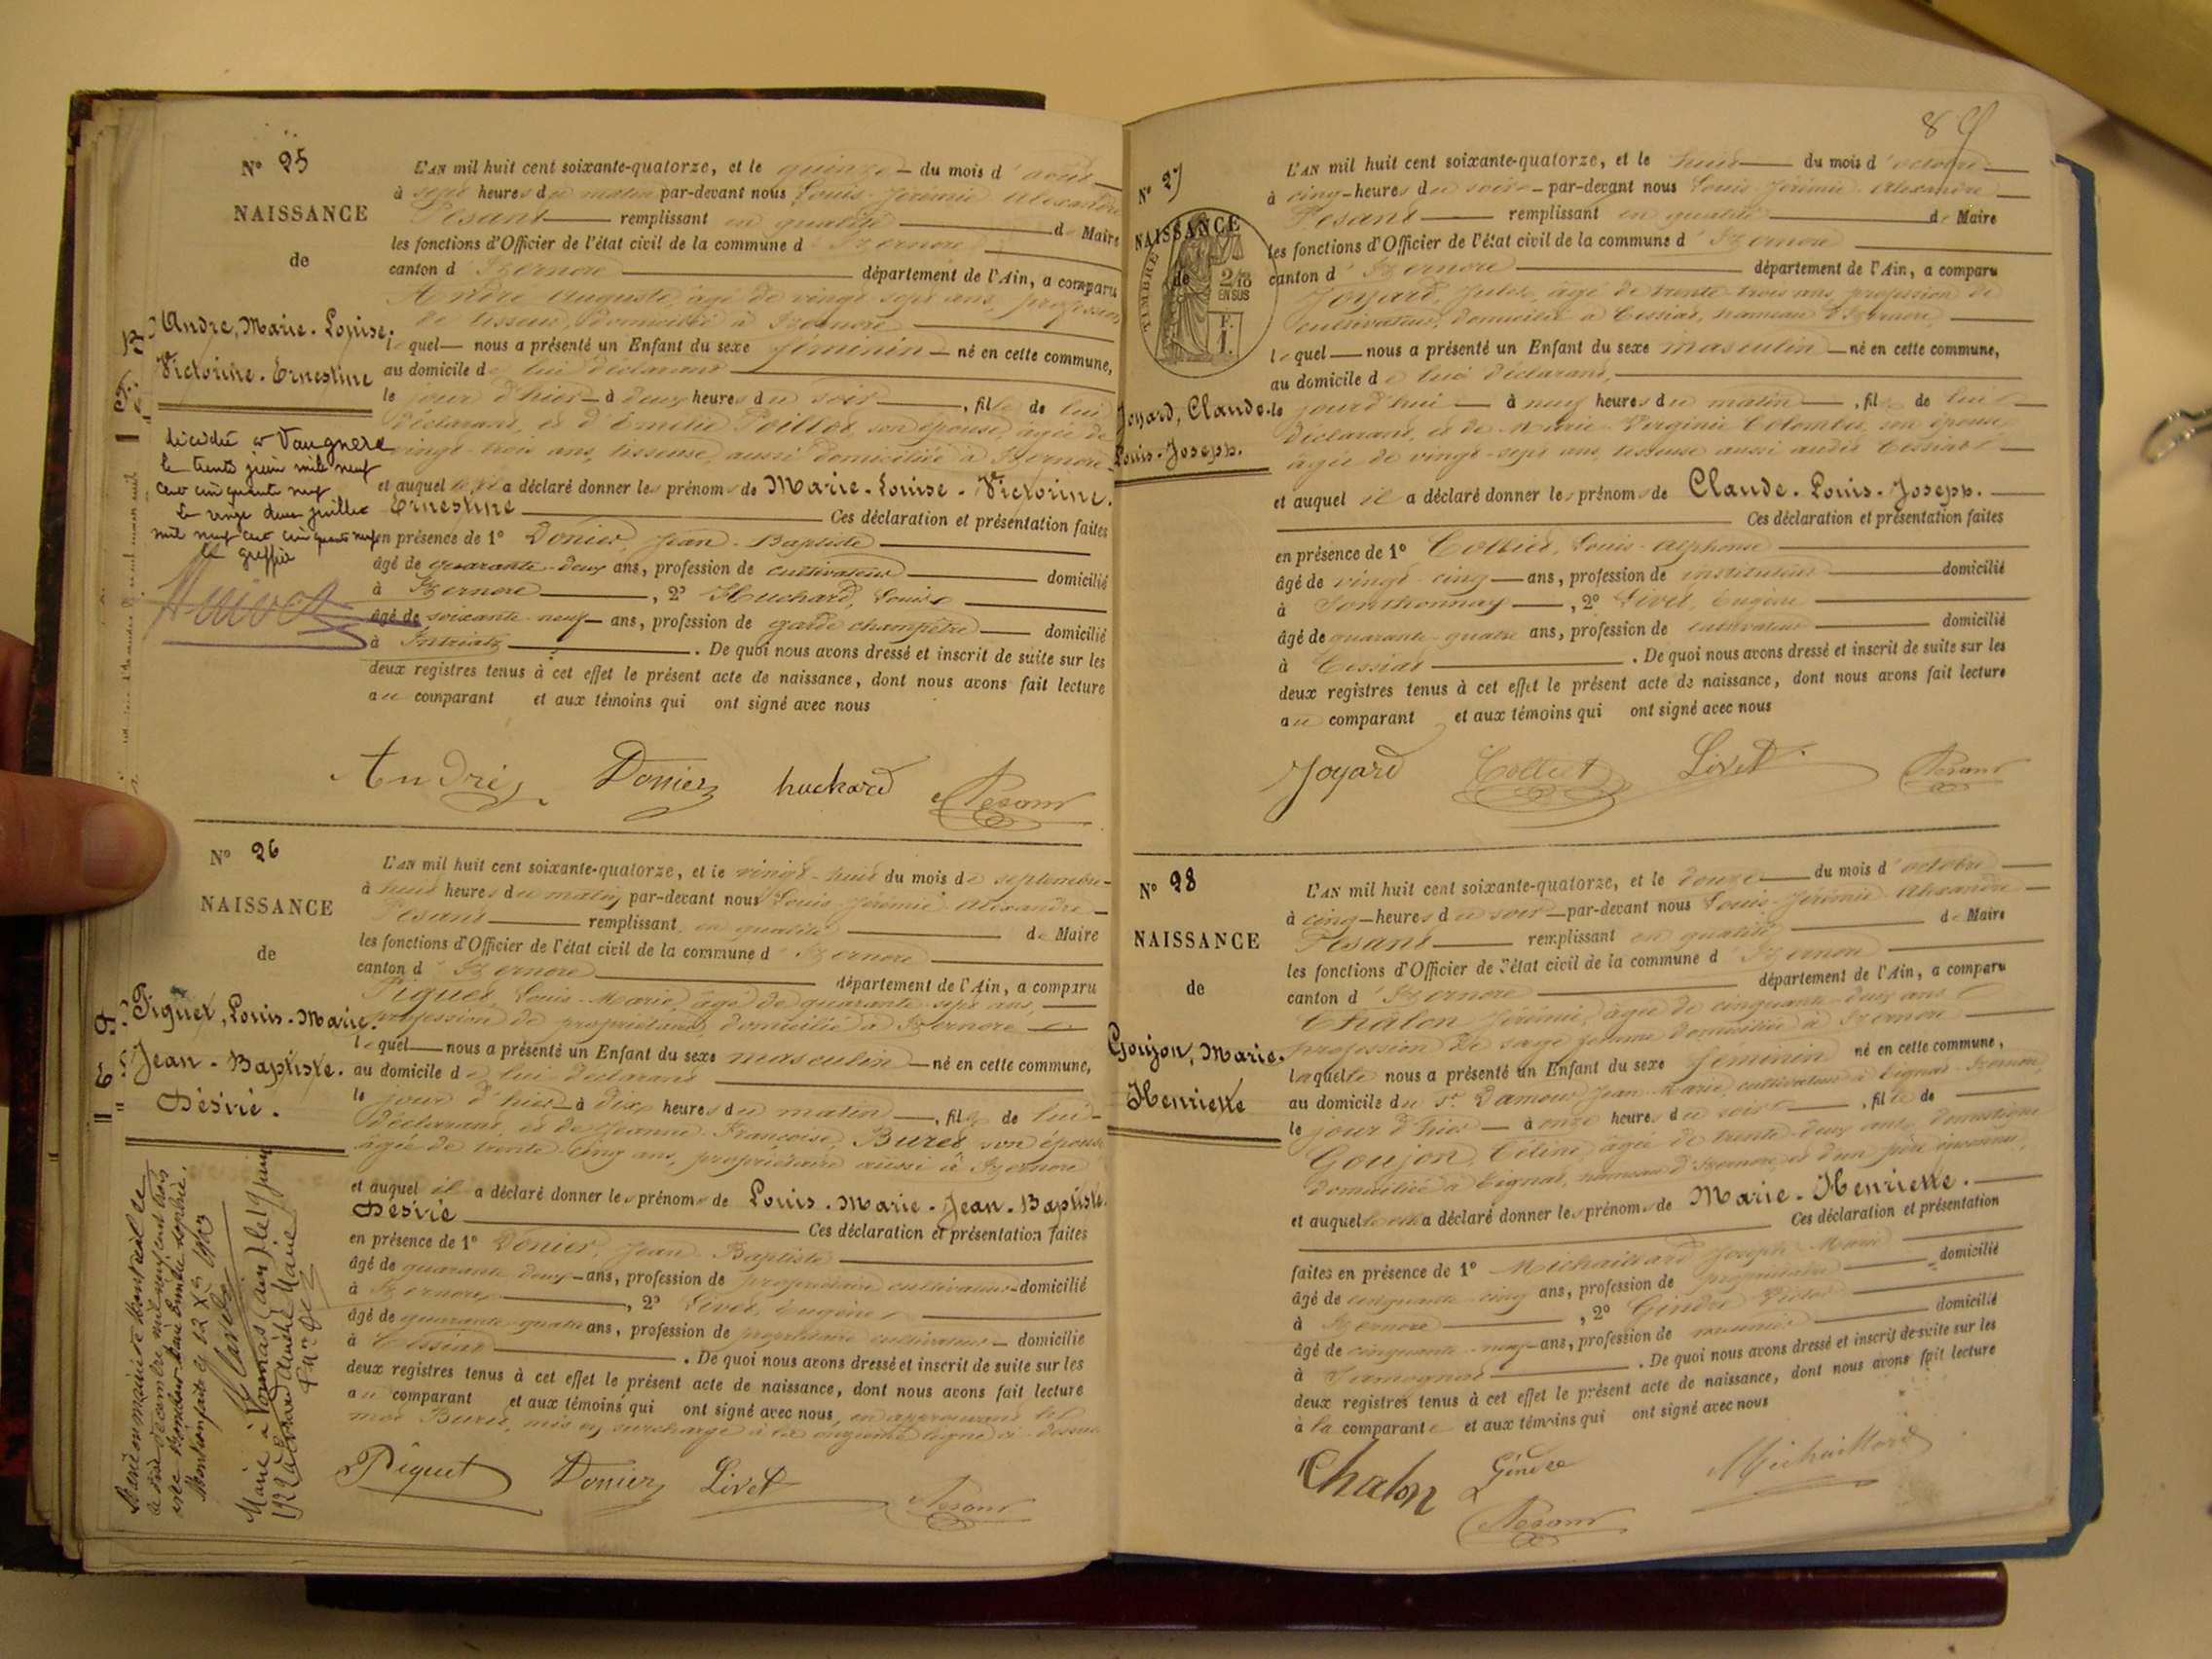 N° 25
NAISSANCE
de
André, Marie-Louise.
Victorine-Ernestine
décédée à Vaugneray
le trente juin mil neuf
cent cinquante neuf
Le vingt deux juillet
mil neuf cent cinquante neuf
le greffier
L'AN mil huit cent soixante-quatorze, et le quinze du mois d'août
à sept heures du matin par-devant nous Louis Jérémie Alexandre
Pesant remplissant en qualité de Maire
les fonctions d'Officier de l'état civil de la commune d'Izernore
canton d'Izernore département de l'Ain, a comparu
André Auguste, âgé de vingt sept ans, profession
de tisseur, domicilié à Izernore
lequel nous a présenté un Enfant du sexe féminin né en cette commune,
au domicile de lui déclarant
le jour d'hier à deux heures du soir, fille de lui
déclarant, et d'Emélie Poillot son épouse, âgée de
vingt-trois ans, tisseuse, aussi domiciliée à Izernore
et auquel il a déclaré donner les prénoms de Marie-Louise-Victorine.
Ernestine Ces déclaration et présentation faites
en présence de 1° Donier, Jean-Baptiste
âgé de quarante-deux ans, profession de cultivateur domicilié
à Izernore, 2° Huchard, Louis
âgé de soixante-neuf ans, profession de garde champêtre domicilié
à Intriatz. De quoi nous avons dressé et inscrit de suite sur les
deux registres tenus à cet effet le présent acte de naissance, dont nous avons fait lecture
au comparant et aux témoins qui ont signé avec nous
André Donier huchard Pesant
N° 26
NAISSANCE
de
Piquet, Louis-Marie.
Jean-Baptiste.
Désiré.
L'AN mil huit cent soixante-quatorze, et le vingt-huit du mois de septembre
à huit heures du matin par-devant nous Louis Jérémie Alexandre
Pesant remplissant en qualité de Maire
les fonctions d'Officier de l'état civil de la commune d'Izernore
canton d'Izernore département de l'Ain, a comparu
Piquet, Louis-Marie, âgé de quarante-sept ans,
profession de propriétaire domicilié à Izernore
lequel nous a présenté un Enfant du sexe masculin né en cette commune,
au domicile de lui déclarant
le jour d'hier à dix heures du matin, fils de lui
déclarant, et de Jeanne Françoise Buret son épouse
âgée de trente cinq ans, propriétaire aussi à Izernore
et auquel il a déclaré donner les prénoms de Louis-Marie-Jean-Baptiste.
Désiré Ces déclaration et présentation faites
en présence de 1° Donier, Jean Baptiste
âgé de quarante deux ans, profession de propriétaire cultivateur domicilié
à Izernore, 2° Livet, Eugène
âgé de quarante-quatre ans, profession de propriétaire cultivateur domicilié
à Cessiat. De quoi nous avons dressé et inscrit de suite sur les
deux registres tenus à cet effet le présent acte de naissance, dont nous avons fait lecture
au comparant et aux témoins qui ont signé avec nous, en approuvant le
mot Buret, mis en surcharge à la onzième ligne ci-dessus
Piquet Donier Livet Pesant
Marié à Vonnas (Ain) le 19 juin
89
N° 27
NAISSANCE
de
TIMBRE
2/10
EN SUS
Joyard, Claude.
Louis-Joseph.
L'AN mil huit cent soixante-quatorze, et le huit du mois d'octobre
à cinq heures du soir par-devant nous Louis Jérémie Alexandre
Pesant remplissant en qualité de Maire
les fonctions d'Officier de l'état civil de la commune d'Izernore
canton d'Izernore département de l'Ain, a comparu
Joyard, Jules, âgé de trente-trois ans, profession de
cultivateur, domicilié à Cessiat, hameau d'Izernore
lequel nous a présenté un Enfant du sexe masculin né en cette commune,
au domicile de lui déclarant,
le jourd'hui à neuf heures du matin, fils de lui
déclarant, et de Marie Virginie Colombet, son épouse
âgée de vingt-sept ans, tisseuse aussi audit Cessiat
et auquel il a déclaré donner les prénoms de Claude-Louis-Joseph.
Ces déclaration et présentation faites
en présence de 1° Colliet, Louis-Alphonse
âgé de vingt-cinq ans, profession de instituteur domicilié
à Sonthonnax, 2° Livet, Eugène
âgé de quarante-quatre ans, profession de cultivateur domicilié
à Cessiat. De quoi nous avons dressé et inscrit de suite sur les
deux registres tenus à cet effet le présent acte de naissance, dont nous avons fait lecture
au comparant et aux témoins qui ont signé avec nous
Joyard Colliet Livet Pesant
N° 28
NAISSANCE
de
Goujon, Marie.
Henriette
L'AN mil huit cent soixante-quatorze, et le douze du mois d'octobre
à cinq heures du soir par-devant nous Louis Jérémie Alexandre
Pesant remplissant en qualité de Maire
les fonctions d'Officier de l'état civil de la commune d'Izernore
canton d'Izernore département de l'Ain, a comparu
Châlon Jérémie, âgée de cinquante-deux ans
profession de sage femme domiciliée à Izernore
laquelle nous a présenté un Enfant du sexe féminin né en cette commune,
au domicile du Sr Damour Jean-Marie, cultivateur à Tignat-Izernore
le jour d'hier à onze heures du soir, fille de
Goujon, Céline, âgée de trente-deux ans, domestique
domiciliée à Tignat, hameau d'Izernore, et d'un père inconnu,
et auquel elle a déclaré donner les prénoms de Marie-Henriette.
Ces déclaration et présentation
faites en présence de 1° Michaillard Joseph Marie
âgé de cinquante-cinq ans, profession de propriétaire domicilié
à Izernore, 2° Gindre Victor
âgé de cinquante-neuf ans, profession de meunier domicilié
à Samognat. De quoi nous avons dressé et inscrit de suite sur les
deux registres tenus à cet effet le présent acte de naissance, dont nous avons fait lecture
à la comparante et aux témoins qui ont signé avec nous
Chalon Gindre Michaillard
Pesant